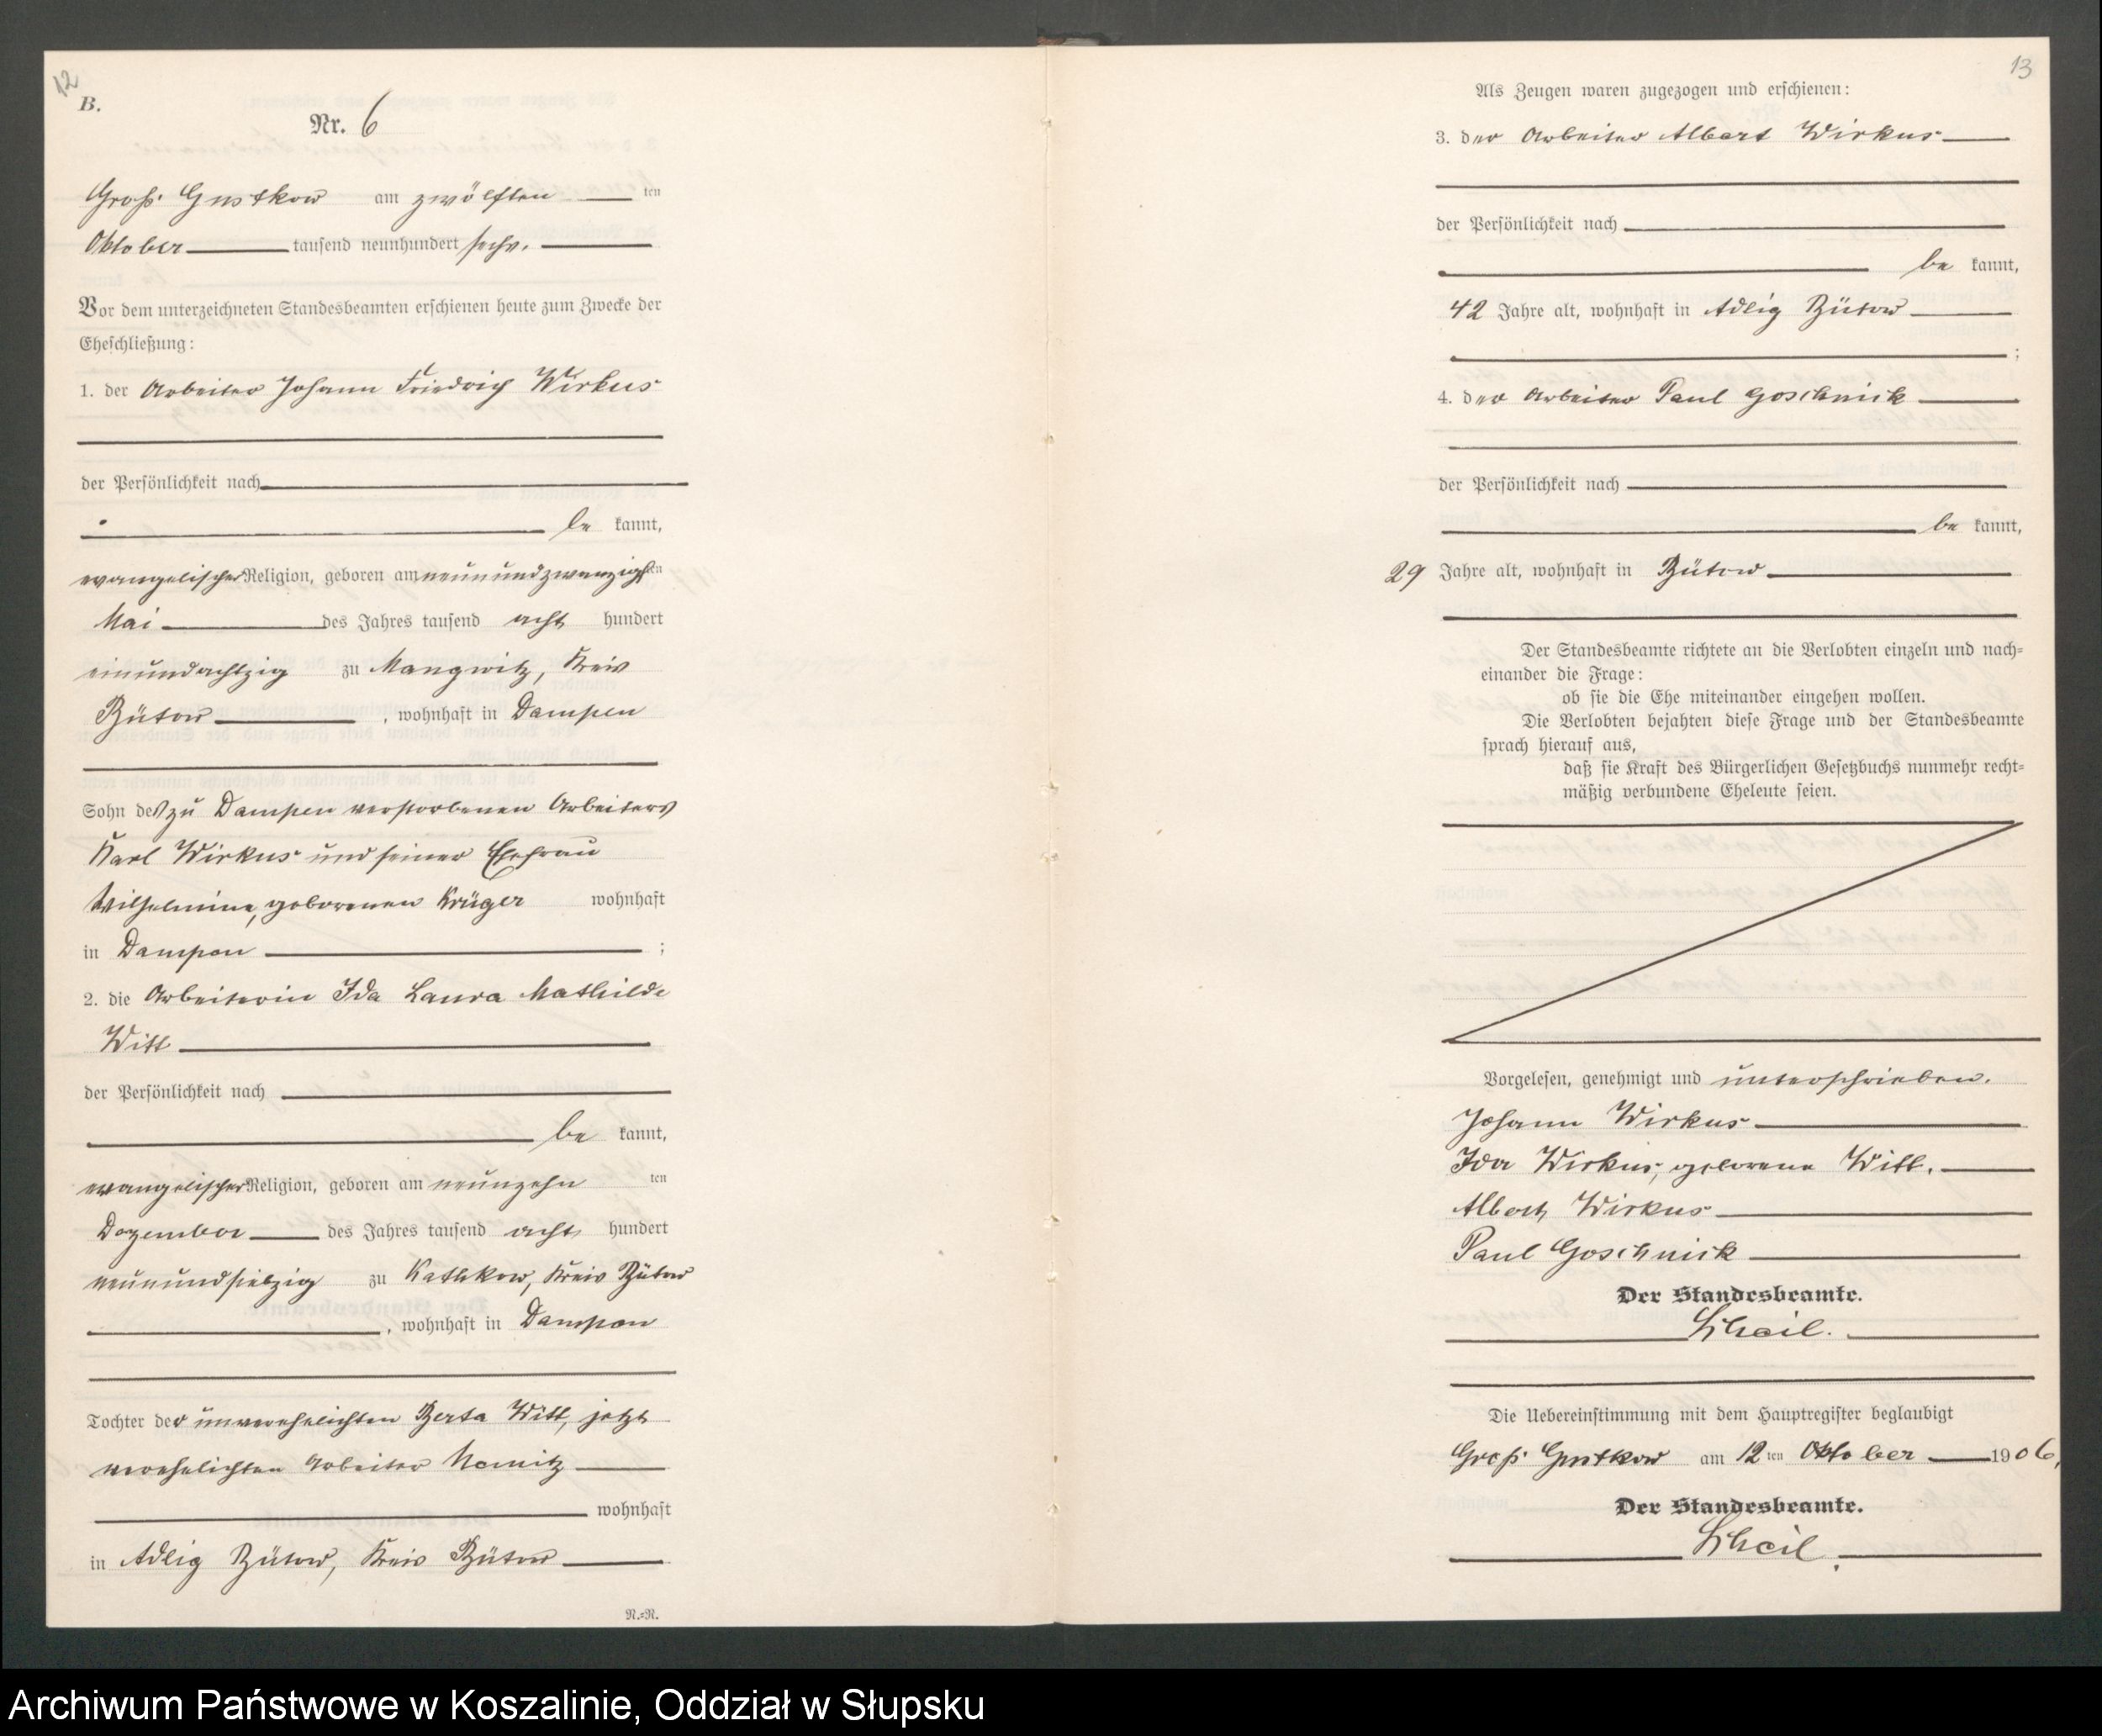 12
B.
Nr. 6
Groß Gustkow am zwölften ten
Oktober tausend neunhundert sechs.
Vor dem unterzeichneten Standesbeamten erschienen heute zum Zwecke der
Eheschließung:
1. der Arbeiter Johann Friedrich Wirkus
der Persönlichkeit nach
be kannt,
evangelischer Religion, geboren am neunundzwanzigsten
Mai des Jahres tausend acht hundert
einundachtzig zu Mangwitz, Kreis
Bütow, wohnhaft in Dampen
Sohn des zu Dampen verstorbenen Arbeiters
Karl Wirkus und seiner Ehefrau
Wilhelmine, geborenen Krüger wohnhaft
in Dampen ;
2. die Arbeiterin Ida Laura Mathilde
Witt
der Persönlichkeit nach
be kannt,
evangelischer Religion, geboren am neunzehn ten
Dezember des Jahres tausend acht hundert
neunundsiebzig zu Kathkow, Kreis Bütow
, wohnhaft in Dampen
Tochter der unverehelichten Berta Witt, jetzt
verehelichten Arbeiter Nemitz
wohnhaft
in Adlig Bütow, Kreis Bütow
N.=N.
13
Als Zeugen waren zugezogen und erschienen:
3. der Arbeiter Albert Wirkus
der Persönlichkeit nach
be kannt,
42 Jahre alt, wohnhaft in Adlig Bütow
;
4. der Arbeiter Paul Goschnick
der Persönlichkeit nach
be kannt,
29 Jahre alt, wohnhaft in Bütow
Der Standesbeamte richtete an die Verlobten einzeln und nach=
einander die Frage:
ob sie die Ehe miteinander eingehen wollen.
Die Verlobten bejahten diese Frage und der Standesbeamte
sprach hierauf aus,
daß sie Kraft des Bürgerlichen Gesetzbuchs nunmehr recht=
mäßig verbundene Eheleute seien.
Vorgelesen, genehmigt und unterschrieben.
Johann Wirkus
Ida Wirkus, geborene Witt.
Albert Wirkus
Paul Goschnick
Der Standesbeamte.
Die Uebereinstimmung mit dem Hauptregister beglaubigt
Groß Gustkow am 12ten Oktober 1906.
Der Standesbeamte.
Archiwum Państwowe w Koszalinie, Oddział w Słupsku